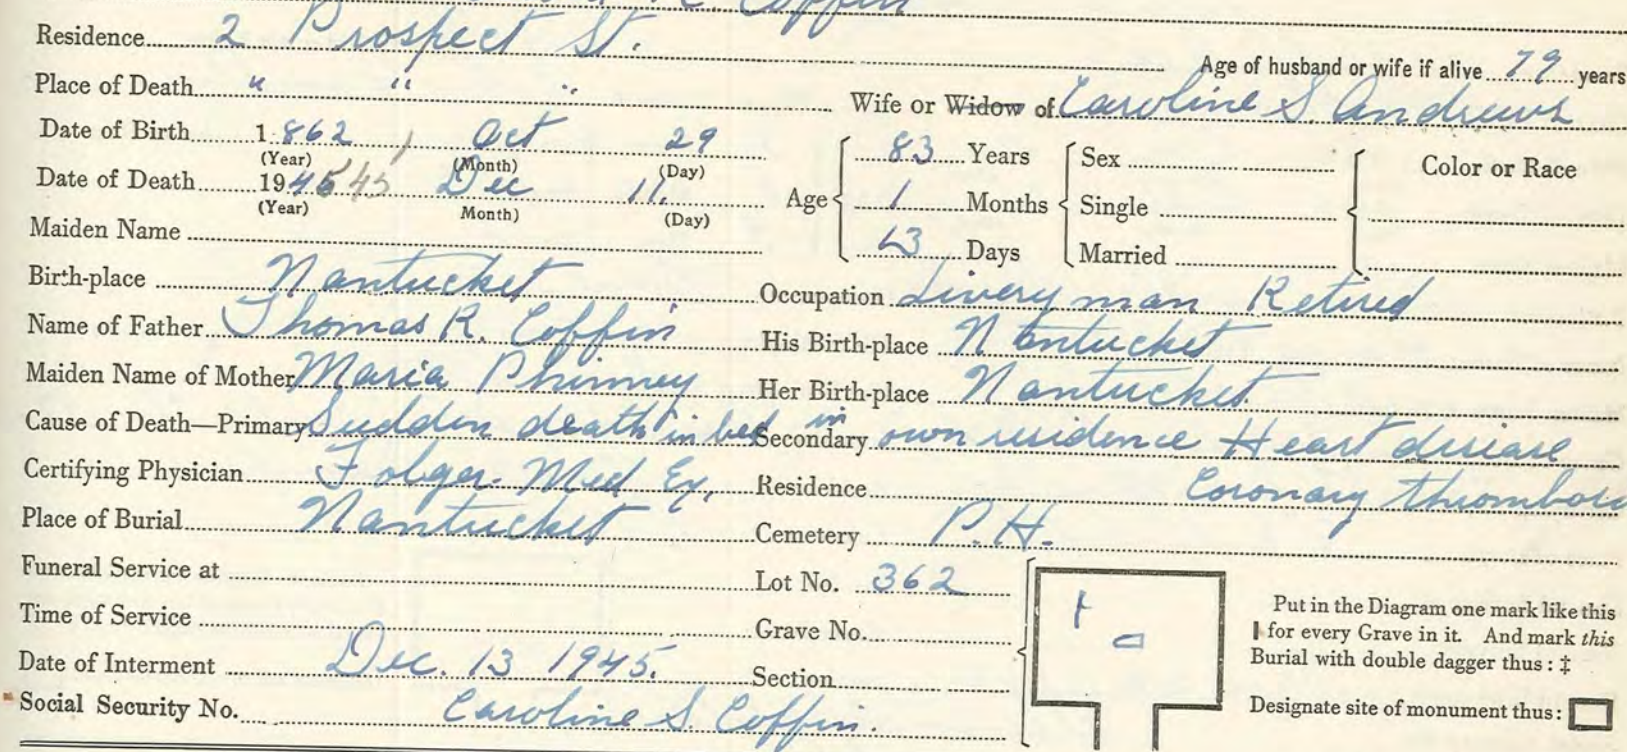 Coffin
Residence 2 Prospect St. Age of husband or wife if alive 79 years
Place of Death " " " Wife or Widow of Caroline S. Andrews
Date of Birth 1862, Oct 29
(Year) (Month) (Day)
Date of Death 1945 45 Dec 11.
(Year) Month) (Day)
Age 83 Years Sex Color or Race
1 Months Single
13 Days Married
Maiden Name
Birth-place Nantucket Occupation Livery man Retired
Name of Father Thomas R. Coffin His Birth-place Nantucket
Maiden Name of Mother Maria Phinney Her Birth-place Nantucket
Cause of Death—Primary Sudden death in bed Secondary in own residence Heart disease
Certifying Physician Folger. Med Ex. Residence Coronary thrombosis
Place of Burial Nantucket Cemetery P.H.
Funeral Service at Lot No. 362
Time of Service Grave No.
Date of Interment Dec. 13 1945. Section
Social Security No. Caroline S. Coffin.
Put in the Diagram one mark like this
for every Grave in it. And mark this
Burial with double dagger thus: ‡
Designate site of monument thus: